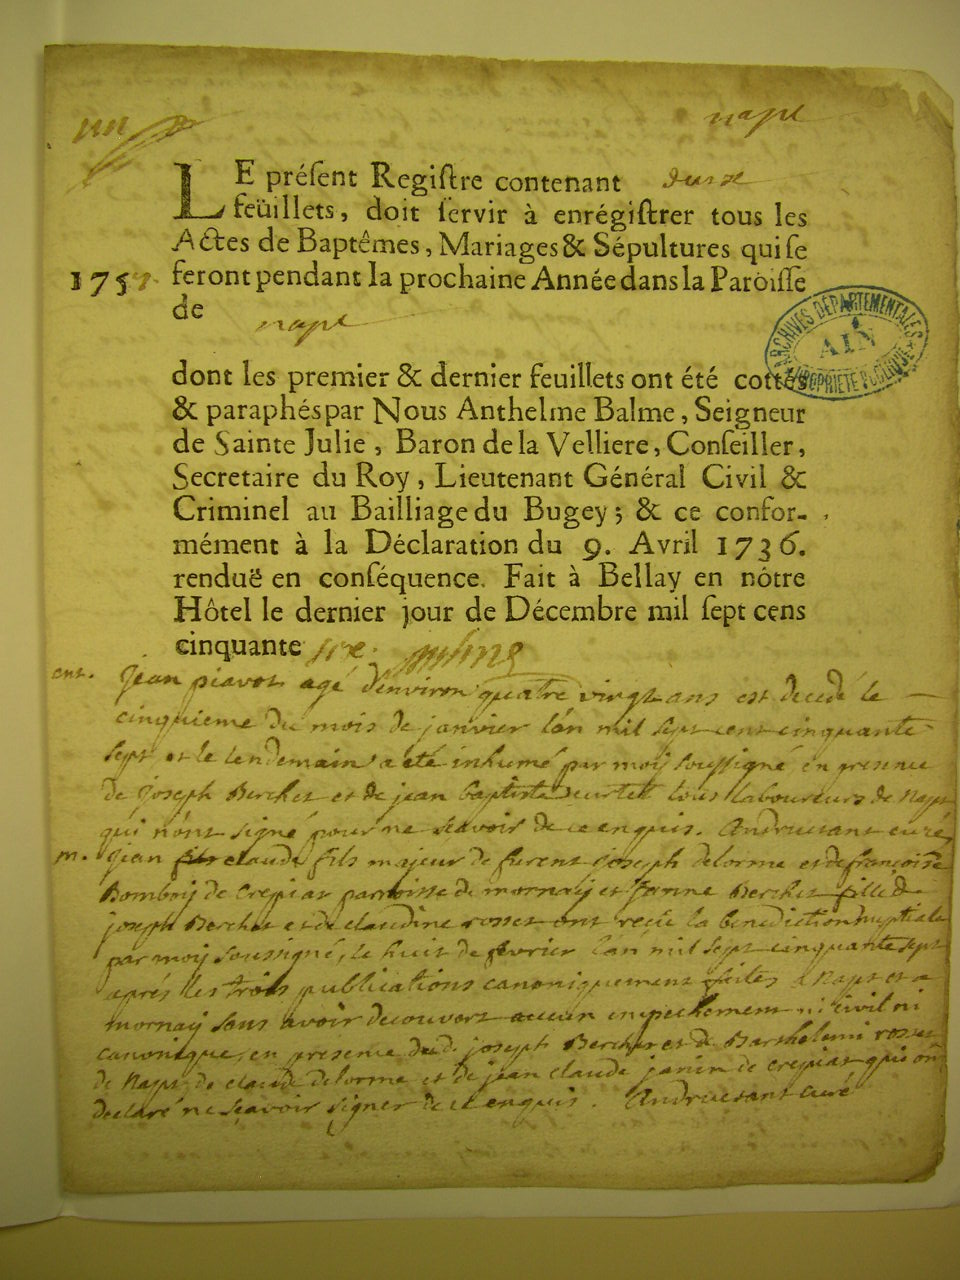 napt
LE préſent Regiſtre contenant douze
feüillets, doit ſervir à enrégiſtrer tous les
Actes de Baptêmes, Mariages & Sépultures qui ſe
1757 feront pendant la prochaine Année dans la Paroiſſe
de napt
ARCHIVES DÉPARTEMENTALES
AIN
PROPRIÉTÉ PUBLIQUE
dont les premier & dernier feuillets ont été cottés
& paraphés par Nous Anthelme Balme, Seigneur
de Sainte Julie, Baron de la Velliere, Conſeiller,
Secretaire du Roy, Lieutenant Général Civil &
Criminel au Bailliage du Bugey; & ce confor-
mément à la Déclaration du 9. Avril 1736.
renduë en conſéquence. Fait à Bellay en nôtre
Hôtel le dernier jour de Décembre mil ſept cens
cinquante six.
ent. jean piavot agé d'environ quatre vingt ans est decedé le
cinquieme du mois de janvier l'an mil sept cent cinquante
sept et le lendemain a eté inhumé par moy soussigné en presence
de joseph Berchet et de jean baptiste tous laboureurs de Napt
qui n'ont signé pour ne sçavoir de ce enquis. Andruetant curé
m. jean claude fils majeur de furent joseph delorme et de françoise
Bomboy de Crepiat parroisse de mornay et Janne Berchet fille de
joseph Berchet et de claudine rosset ont reçu la benediction nuptiale
par moy soussigné, le huit de fevrier l'an mil sept cinquante sept
aprés les trois publications canoniquement faites a Napt et a
mornay sans avoir decouvert aucun impechement ni civil ni
canonique, en presence dud. joseph Berchet et de Barthelemi rosset
de Napt, de claude delorme et de jean claude janin de crepiat qui ont
declaré ne sçavoir signer de ce enquis. Andruetant curé